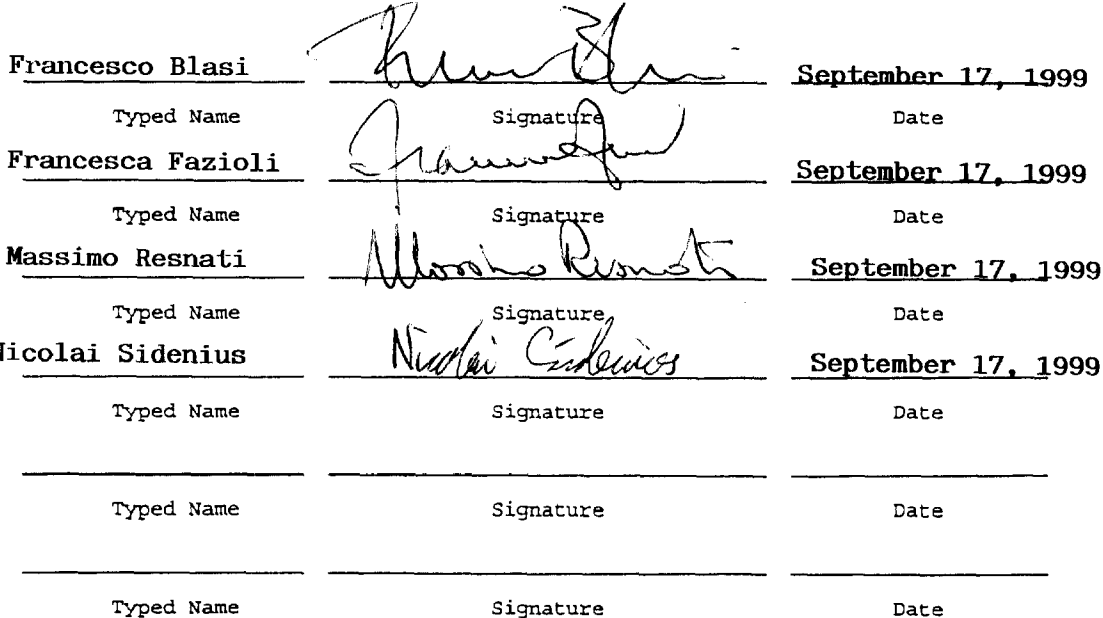 Francesco Blasi September 17, 1999
Typed Name Signature Date
Francesca Fazioli September 17, 1999
Typed Name Signature Date
Massimo Resnati Massimo Resnati September 17, 1999
Typed Name Signature Date
Nicolai Sidenius Nicolai Sidenius September 17, 1999
Typed Name Signature Date
Typed Name Signature Date
Typed Name Signature Date